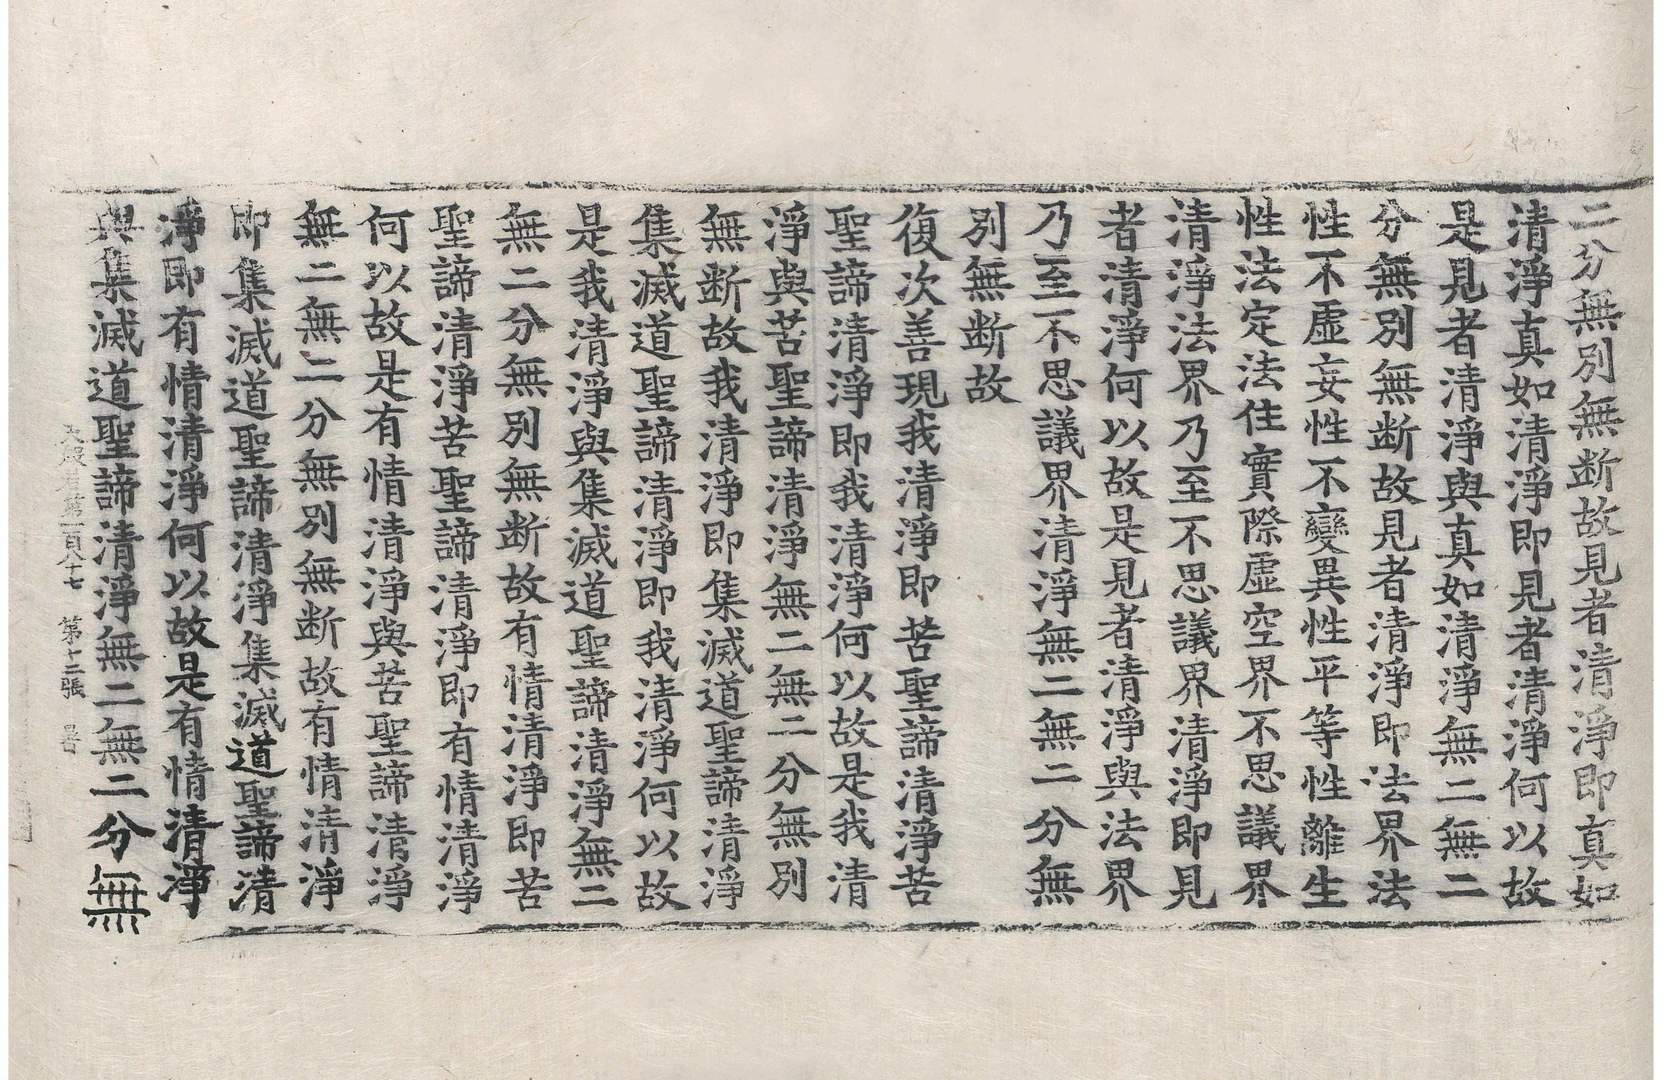 二分無別無断故見者清淨即真如
清淨真如清淨即見者清淨何以故
是見者清淨與真如清淨無二無二
分無別無断故見者清淨即法界法
性不虛妄性不變異性平等性離生
性法定法住實際虛空界不思議界
清淨法界乃至不思議界清淨即見
者清淨何以故是見者清淨與法界
乃至不思議界清淨無二無二分無
別無断故
復次善現我清淨即苦聖諦清淨苦
聖諦清淨即我清淨何以故是我清
淨與苦聖諦清淨無二無二分無別
無断故我清淨即集滅道聖諦清淨
集滅道聖諦清淨即我清淨何以故
是我清淨與集滅道聖諦清淨無二
無二分無別無断故有情清淨即苦
聖諦清淨苦聖諦清淨即有情清淨
何以故是有情清淨與苦聖諦清淨
無二無二分無別無断故有情清淨
即集滅道聖諦清淨集滅道聖諦清
淨即有情清淨何以故是有情清淨
與集滅道聖諦清淨無二無二分無
大般若第一百八十七 第十二張